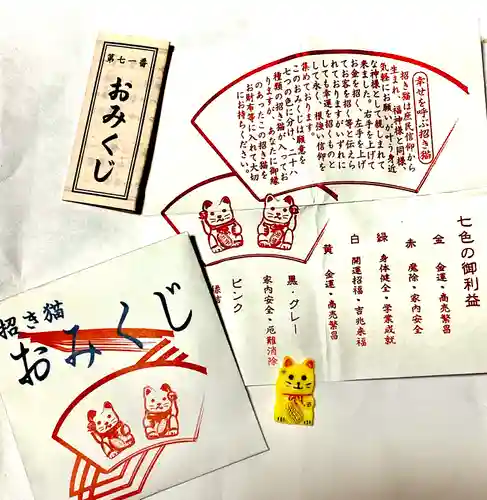 第七一番
おみくじ
幸せを呼ぶ招き猫
招き猫は庶民信仰から
生まれ、福神様と同様、
気軽にお願いが叶う身近
な神様として親しまれて
来ました。右手を上げて
お金を招く、左手を上げ
てお客を招く等と伝えら
れておりますが、いずれに
しても幸運を招くものと
して永く、根強い信仰を
集めております。
このおみくじは願意を
七つの色に分け、二十八
種類の招き猫が入ってお
りますが、あなたに御縁
のあったこの招き猫を
お財布等に入れて大切
にお持ちください。
七色の御利益
金 金運・商売繁昌
赤 魔除・家内安全
緑 身体健全・学業成就
白 開運招福・吉兆来福
黄 金運・商売繁昌
黒・グレー
家内安全・厄難消除
ピンク
縁結
招き猫
おみくじ